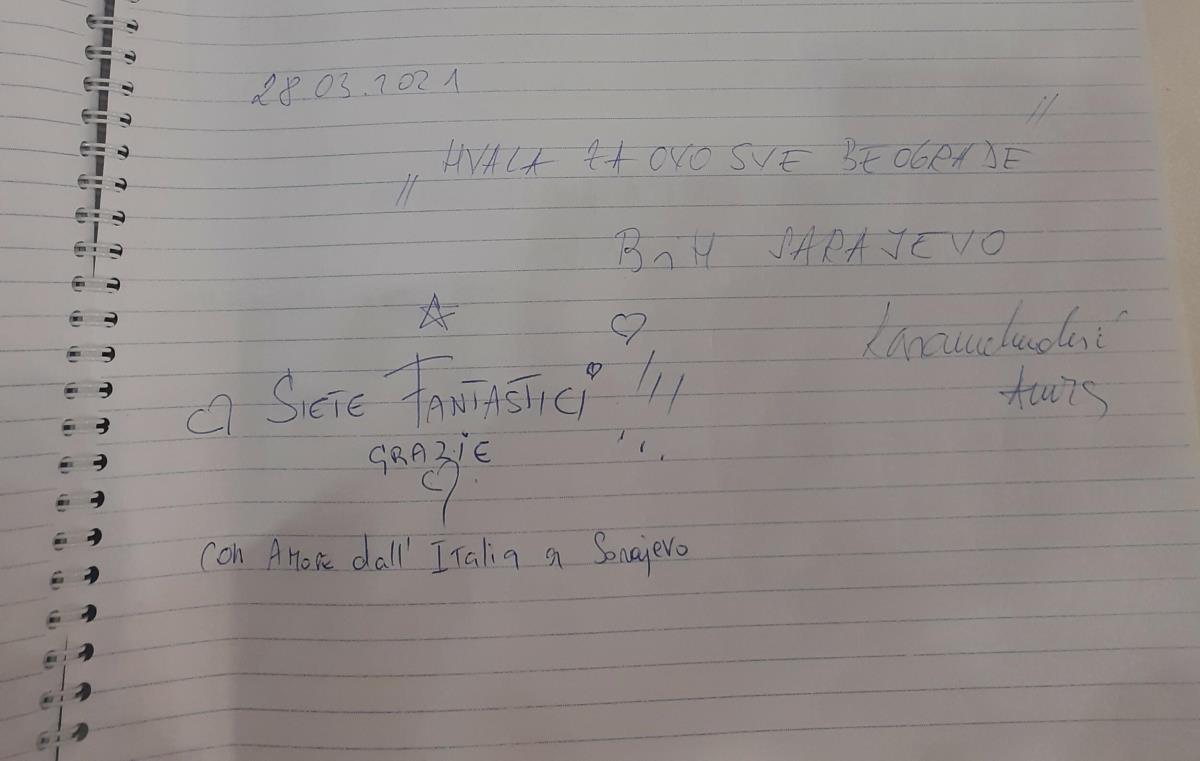 28.03.2021
"HVALA ZA OVO SVE BEOGRADE"
BiH SARAJEVO
SIETE FANTASTICI !!!
GRAZIE
con Amore dall' Italia a Sarajevo